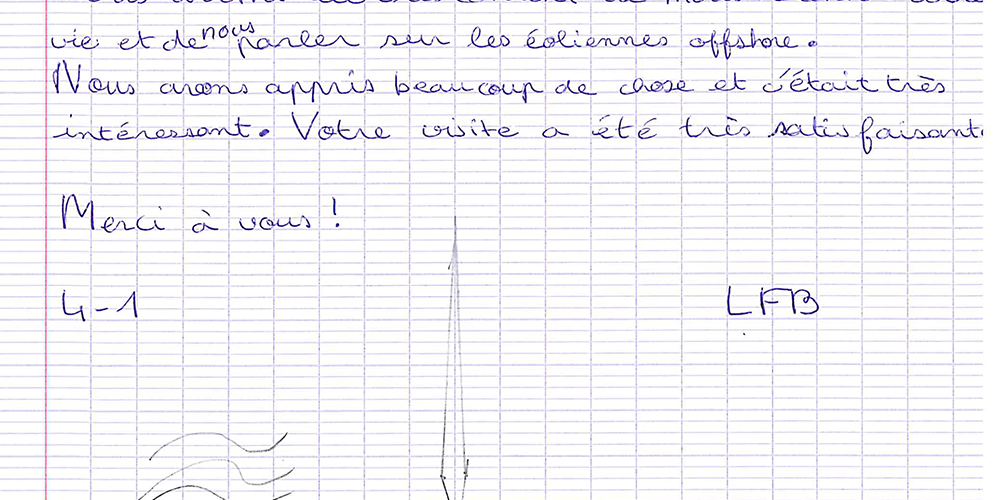 vie et de nous parler sur les éoliennes offshore.
Nous avons appris beaucoup de chose et c'était très
intéressant. Votre visite a été très satisfaisant
Merci à vous !
4-1 LFB